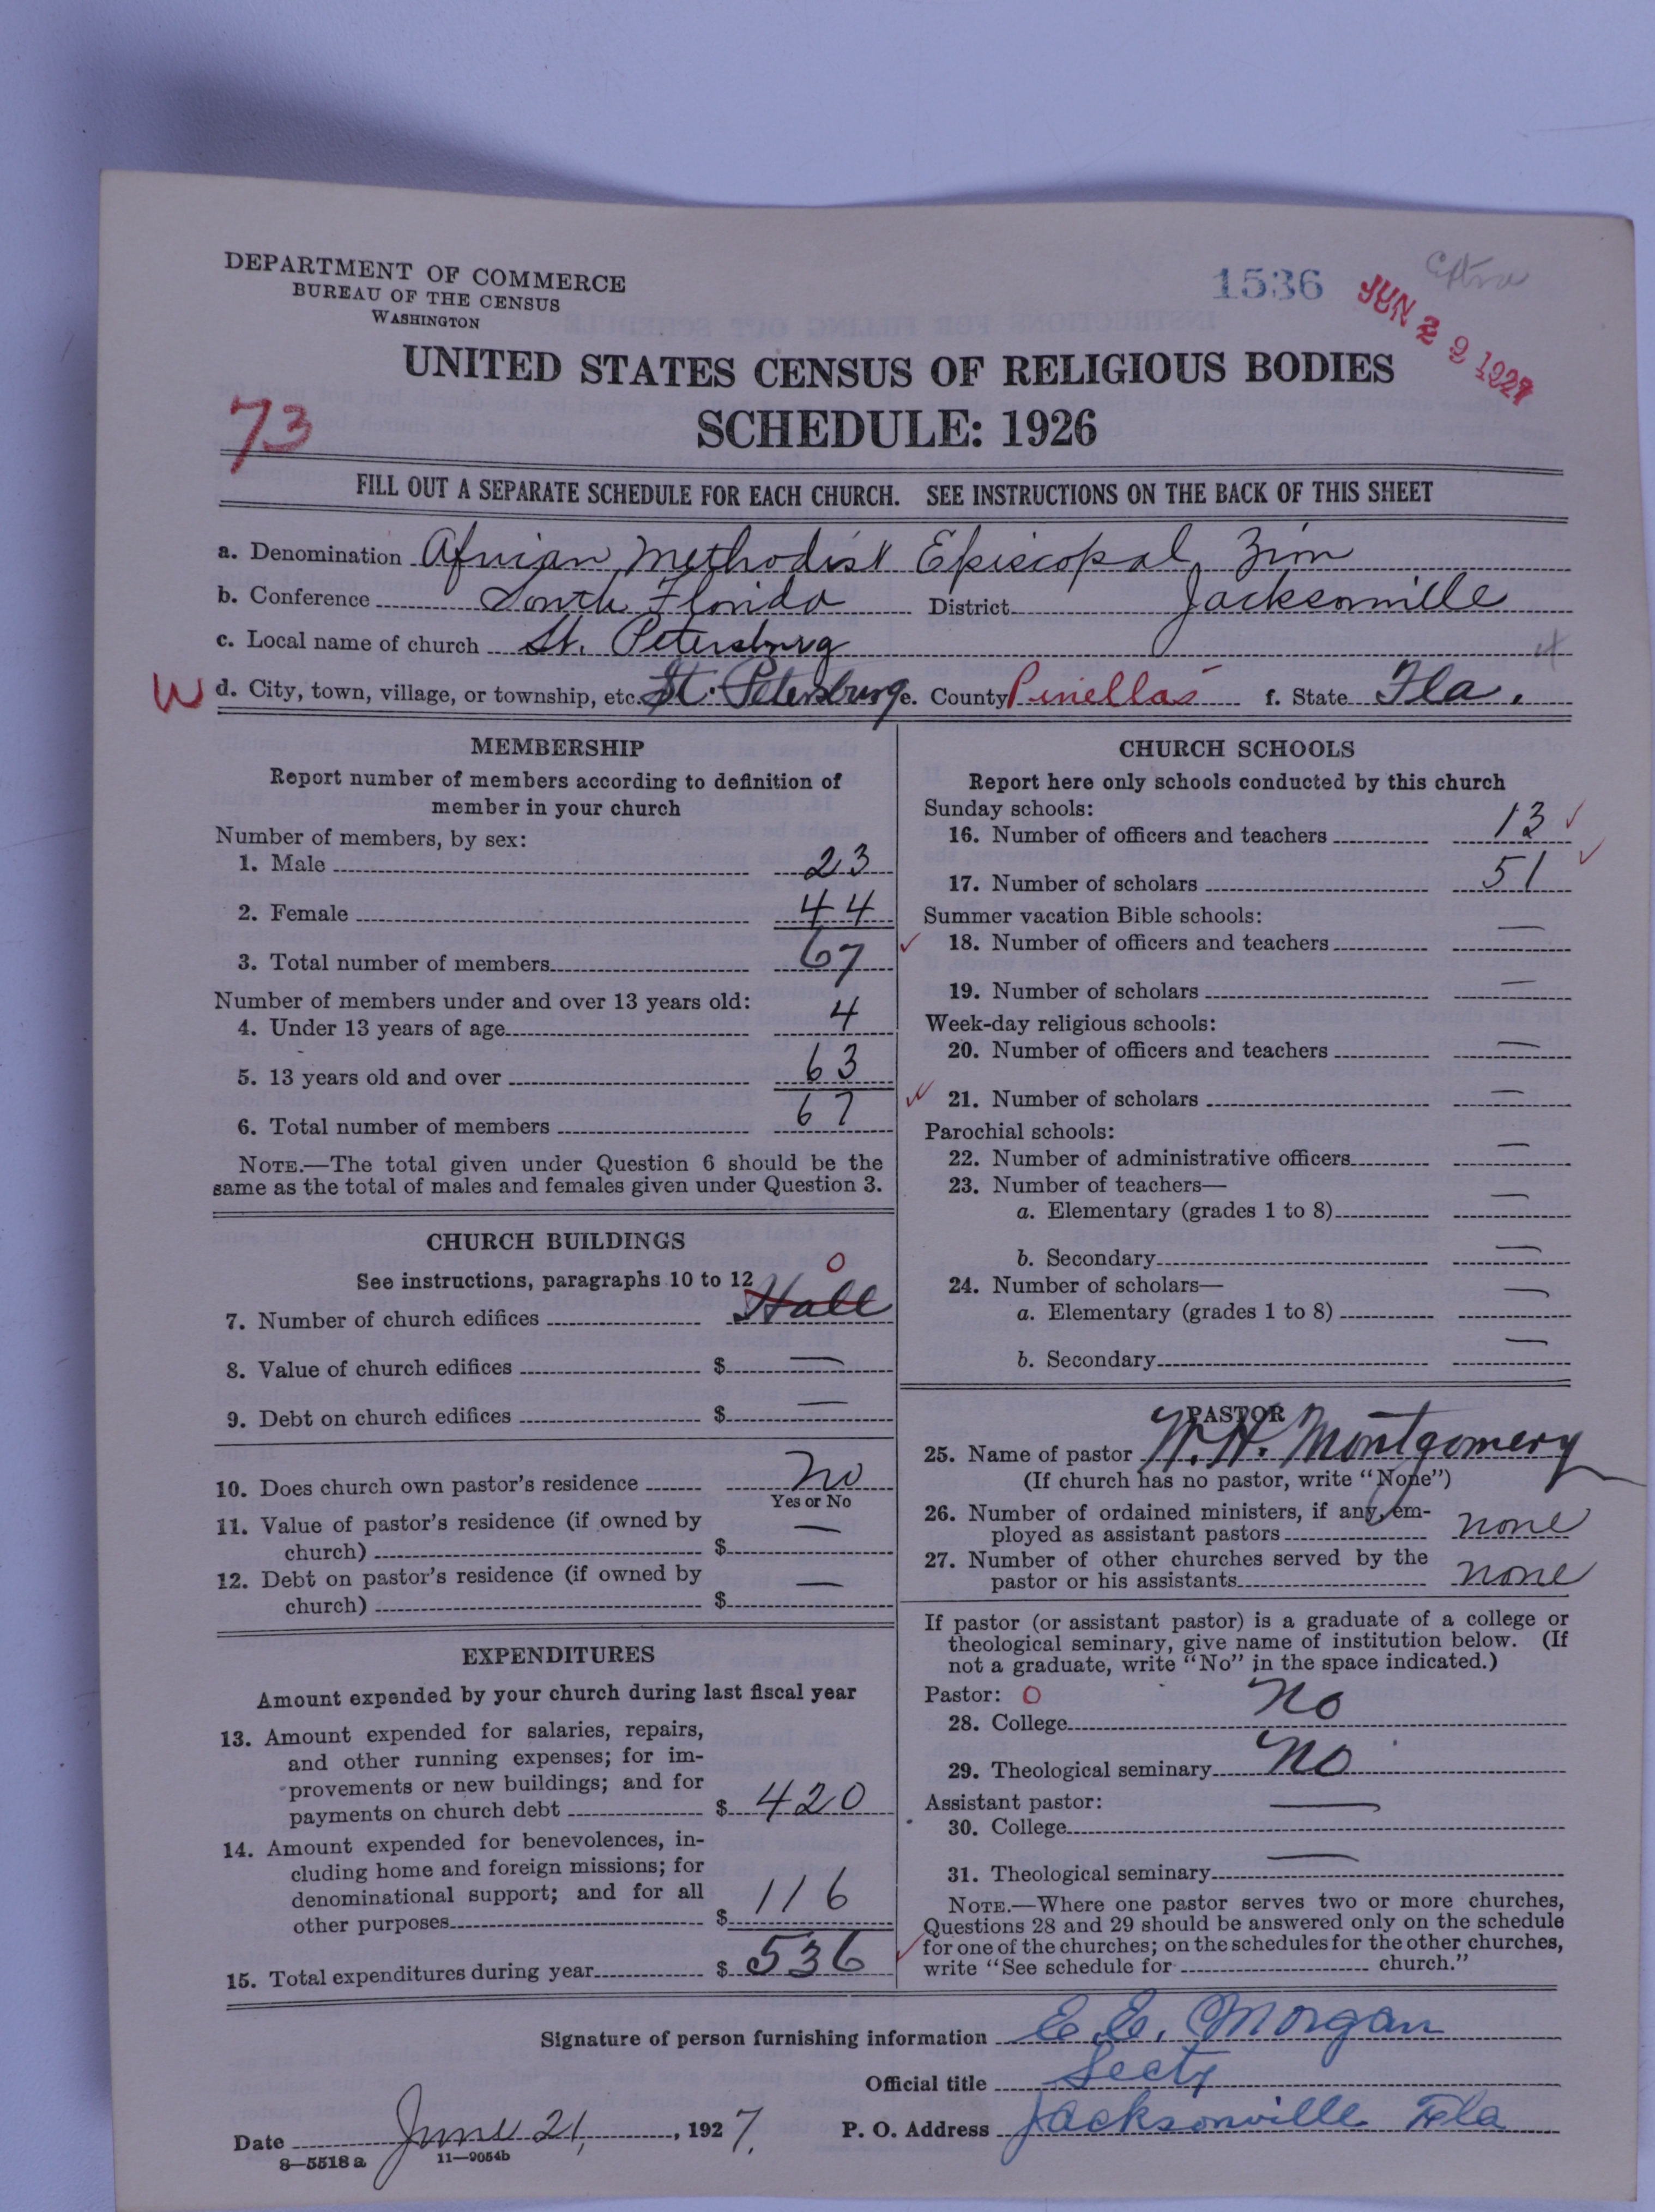 DEPARTMENT OF COMMERCE
BUREAU OF THE CENSUS
WASHINGTON
1536
JUN 29 1927
UNITED STATES CENSUS OF RELIGIOUS BODIES
73
SCHEDULE: 1926
FILL OUT A SEPARATE SCHEDULE FOR EACH CHURCH. SEE INSTRUCTIONS ON THE BACK OF THIS SHEET
a. Denomination African Methodist Episcopal Zion
b. Conference South Florida District Jacksonville
c. Local name of church St. Petersburg
4
W d. City, town, village, or township, etc. St. Petersburg e. County Pinellas f. State Fla.
MEMBERSHIP
Report number of members according to definition of
member in your church
Number of members, by sex:
1. Male 23
2. Female 44
3. Total number of members 67
Number of members under and over 13 years old:
4. Under 13 years of age 4
5. 13 years old and over 63
6. Total number of members 67
NOTE.—The total given under Question 6 should be the
same as the total of males and females given under Question 3.
CHURCH BUILDINGS
See instructions, paragraphs 10 to 12
0
7. Number of church edifices Hall
8. Value of church edifices $ —
9. Debt on church edifices $ —
10. Does church own pastor's residence No
Yes or No
11. Value of pastor's residence (if owned by
church) $ —
12. Debt on pastor's residence (if owned by
church) $ —
EXPENDITURES
Amount expended by your church during last fiscal year
13. Amount expended for salaries, repairs,
and other running expenses; for im-
provements or new buildings; and for
payments on church debt $ 420
14. Amount expended for benevolences, in-
cluding home and foreign missions; for
denominational support; and for all
other purposes $ 116
15. Total expenditures during year $ 536
CHURCH SCHOOLS
Report here only schools conducted by this church
Sunday schools:
16. Number of officers and teachers 13 ✓
17. Number of scholars 51 ✓
Summer vacation Bible schools:
✓ 18. Number of officers and teachers —
19. Number of scholars —
Week-day religious schools:
20. Number of officers and teachers —
✓ 21. Number of scholars —
Parochial schools:
22. Number of administrative officers —
23. Number of teachers—
a. Elementary (grades 1 to 8) —
b. Secondary —
24. Number of scholars—
a. Elementary (grades 1 to 8) —
b. Secondary —
PASTOR
25. Name of pastor W. H. Montgomery
(If church has no pastor, write "None")
26. Number of ordained ministers, if any, em-
ployed as assistant pastors none
27. Number of other churches served by the
pastor or his assistants none
If pastor (or assistant pastor) is a graduate of a college or
theological seminary, give name of institution below. (If
not a graduate, write "No" in the space indicated.)
Pastor: 0
28. College No
29. Theological seminary No
Assistant pastor:
30. College —
31. Theological seminary —
NOTE.—Where one pastor serves two or more churches,
Questions 28 and 29 should be answered only on the schedule
✓ for one of the churches; on the schedules for the other churches,
write "See schedule for church."
Signature of person furnishing information E. E. Morgan
Official title Secty
Date June 21, 1927. P. O. Address Jacksonville Fla
8—5518 a 11—9054b